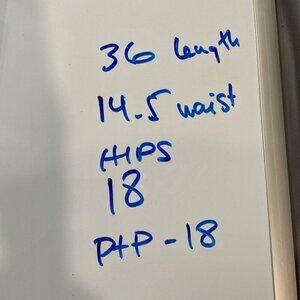 36 Length
14.5 waist
HIPS
18
PTP - 18